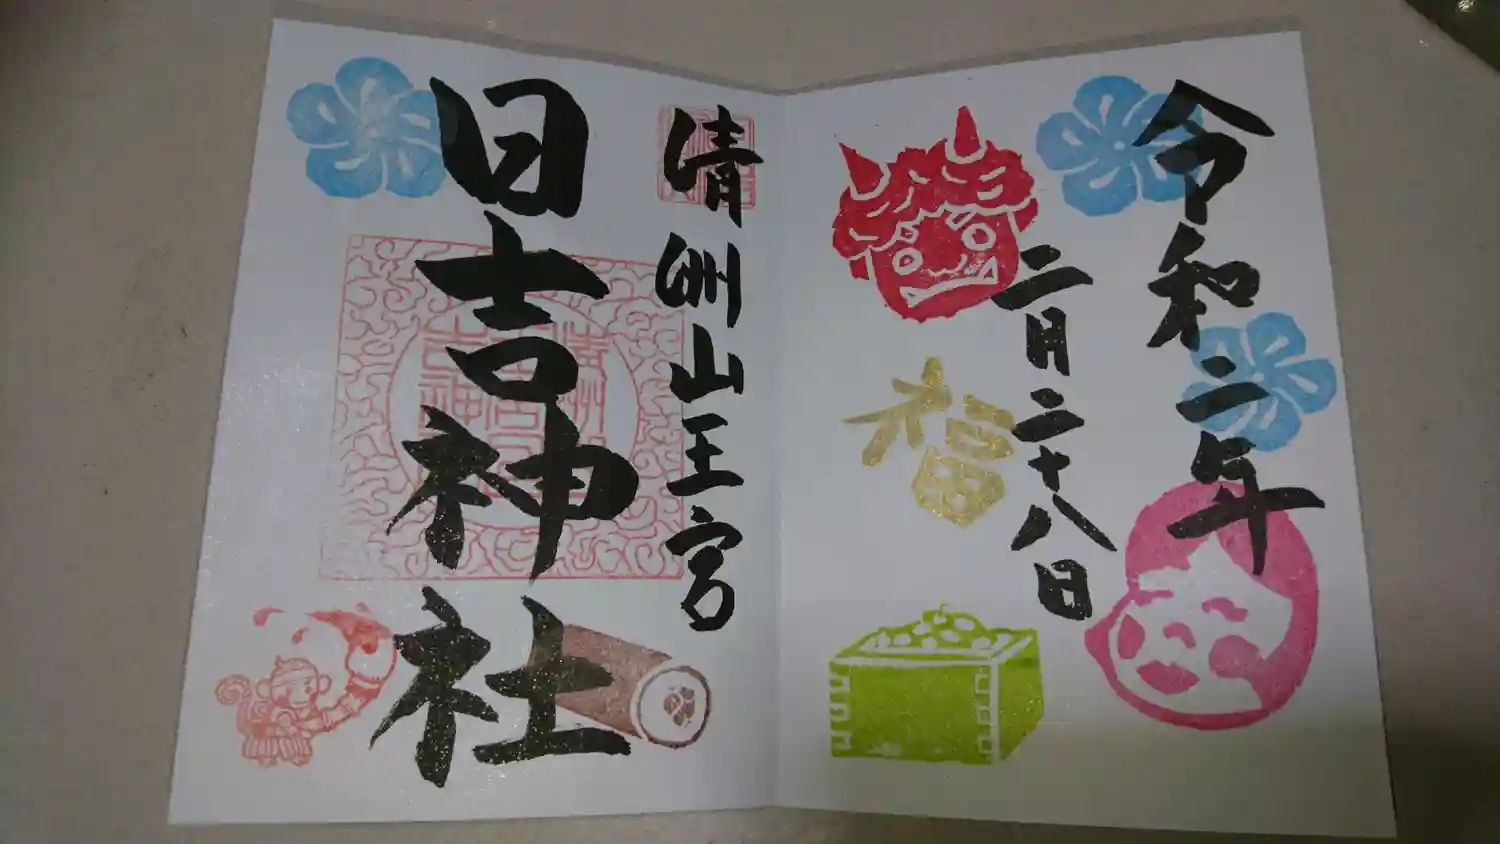 令和二年
二月二十八日
福
清洲山王宮
日吉神社